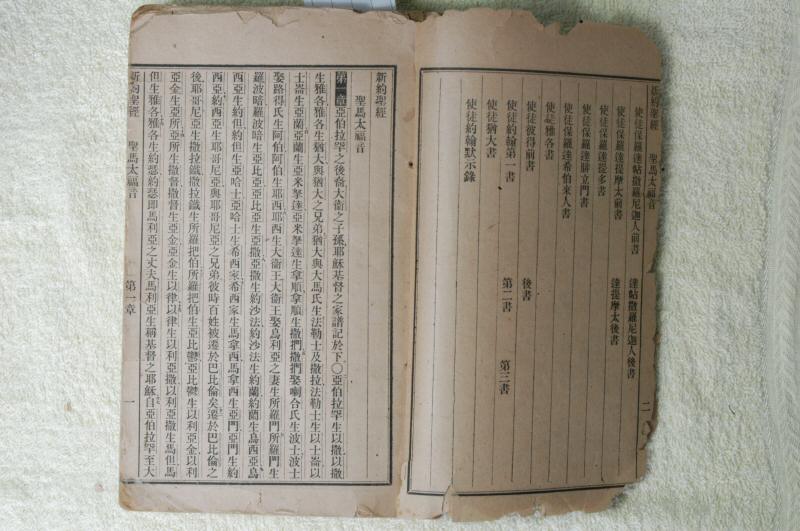 新約聖經 聖馬太福音 二
使徒保羅達帖撒羅尼迦人前書 達帖撒羅尼迦人後書
使徒保羅達提摩太前書 達提摩太後書
使徒保羅達提多書
使徒保羅達腓立門書
使徒保羅達希伯來人書
使徒雅各書
使徒彼得前書 後書
使徒約翰第一書 第二書 第三書
使徒猶大書
使徒約翰默示錄
新約聖經
聖馬太福音
第一章亞伯拉罕之後裔大衛之子孫耶穌基督之家譜記於下〇亞伯拉罕生以撒以撒
生雅各雅各生猶大與猶大之兄弟猶大與大馬氏生法勒士及撒拉法勒士生以士崙以
士崙生亞蘭亞蘭生亞米拏達亞米拏達生拿順拿順生撒捫撒捫娶喇合氏生波士波士
娶路得氏生阿伯阿伯生耶西耶西生大衛王大衛王娶烏利亞之妻生所羅門所羅門生
羅波暗羅波暗生亞比亞亞比亞生亞撒亞撒生約沙法約沙法生約蘭約蘭生烏西亞烏
西亞生約但約但生亞哈士亞哈士生希西家希西家生馬拿西馬拿西生亞門亞門生約
西亞約西亞生耶哥尼亞與耶哥尼亞之兄弟彼時百姓被遷於巴比倫矣遷於巴比倫之
後耶哥尼亞生撒拉鐵撒拉鐵生所羅把伯所羅把伯生亞比鬱亞比鬱生以利亞金以利
亞金生亞所亞所生撒督撒督生亞金亞金生以律以律生以利亞撒以利亞撒生馬但馬
但生雅各雅各生約瑟約瑟即馬利亞之丈夫馬利亞生稱基督之耶穌自亞伯拉罕至大
新約聖經 聖馬太福音 第一章 一